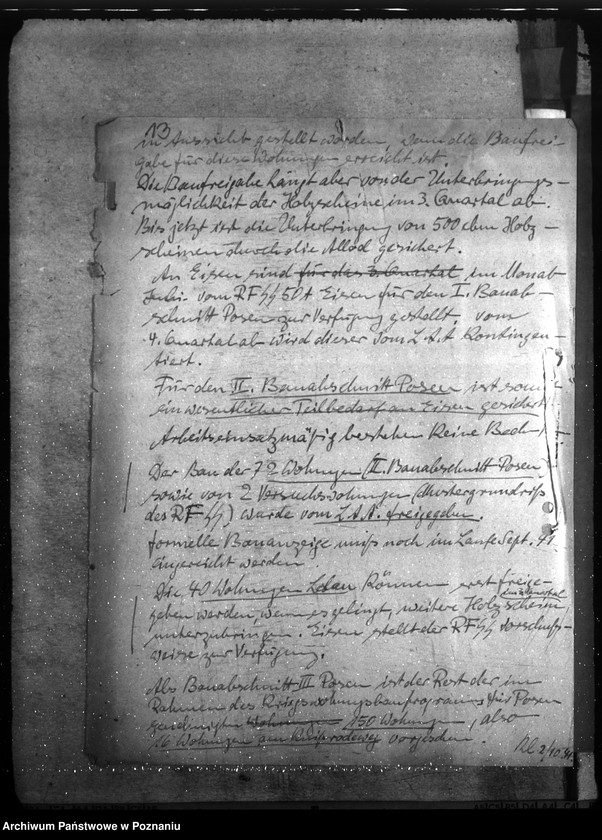 13
in Aussicht gestellt worden, wenn die Baufrei-
gabe für diese Wohnungen erreicht ist.
Die Baufreigabe hängt aber von der Unterbringungs-
möglichkeit der Holzscheine im 3. Quartal ab.
Bis jetzt ist die Unterbringung von 500 cbm Holz-
scheinen durch die Allod gesichert.
An Eisen sind für das 3. Quartal im Monat
Juli vom RFSS 50 t Eisen für den I. Bauab-
schnitt Posen zur Verfügung gestellt, vom
4. Quartal ab wird dieser vom L.A.A. kontingen-
tiert.
Für den II. Bauabschnitt Posen ist somit
ein wesentlicher Teilbedarf an Eisen gesichert.
Arbeitseinsatzmäßig bestehen keine Bed.
Der Bau der 72 Wohnungen (II. Bauabschnitt Posen)
sowie von 2 Versuchswohnungen (Mustergrundriß
des RFSS) wurde vom L.A.A. freigegeben.
formelle Bauanzeige muß noch im Laufe Sept. 41
eingereicht werden.
Die 40 Wohnungen können erst freige-
geben werden, wenn es gelingt, weitere Holzscheine
unterzubringen. Eisen stellt der RFSS vorschuß-
weise zur Verfügung.
Als Bauabschnitt III Posen ist der Rest der im
Rahmen des Kriegswohnungsbauprogramms für Posen
genehmigten Wohnungen 150 Wohnungen, also
16 Wohnungen am vorgesehen.
2/10 41.
Archiwum Państwowe w Poznaniu